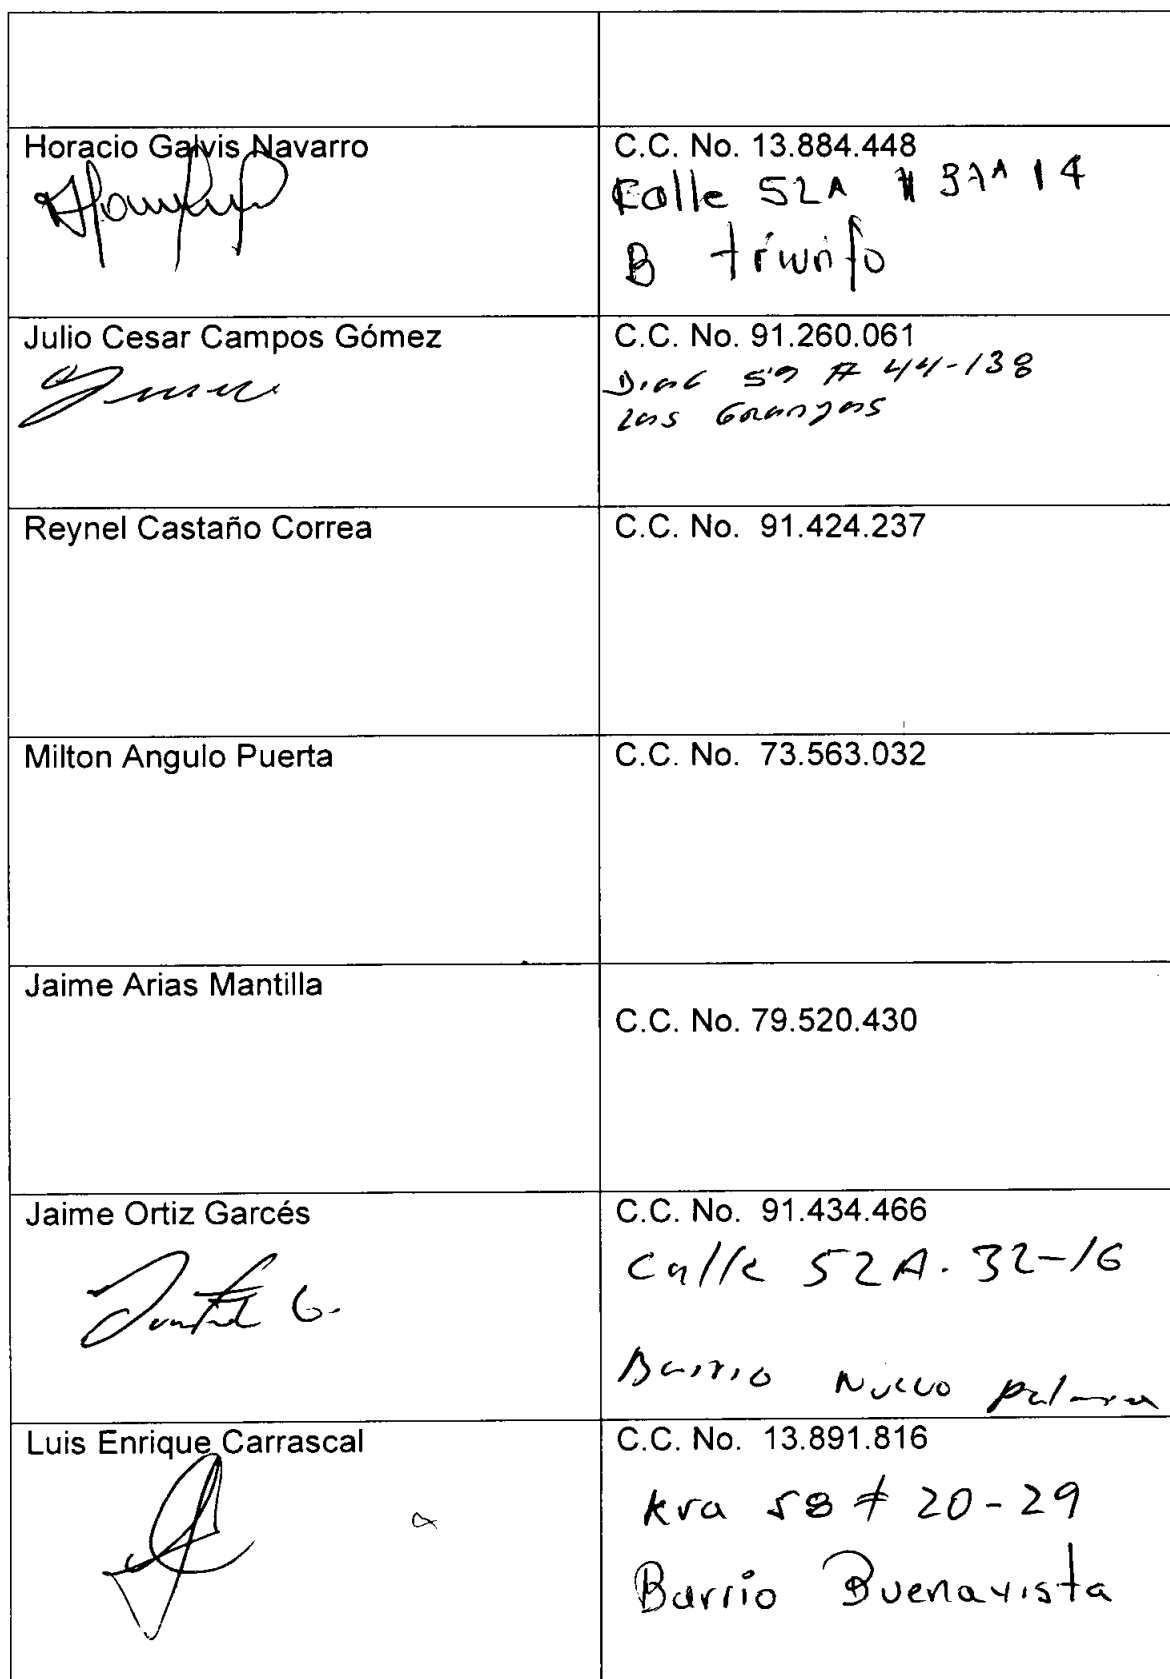 Horacio Galvis Navarro
C.C. No. 13.884.448
Calle 52A # 37A 14
B triunfo
Julio Cesar Campos Gómez
C.C. No. 91.260.061
# 44-138
Las Granjas
Reynel Castaño Correa
C.C. No. 91.424.237
Milton Angulo Puerta
C.C. No. 73.563.032
Jaime Arias Mantilla
C.C. No. 79.520.430
Jaime Ortiz Garcés
C.C. No. 91.434.466
Calle 52A. 32-16
Barrio Nuevo
Luis Enrique Carrascal
C.C. No. 13.891.816
kra 58 # 20-29
Barrio Buenavista